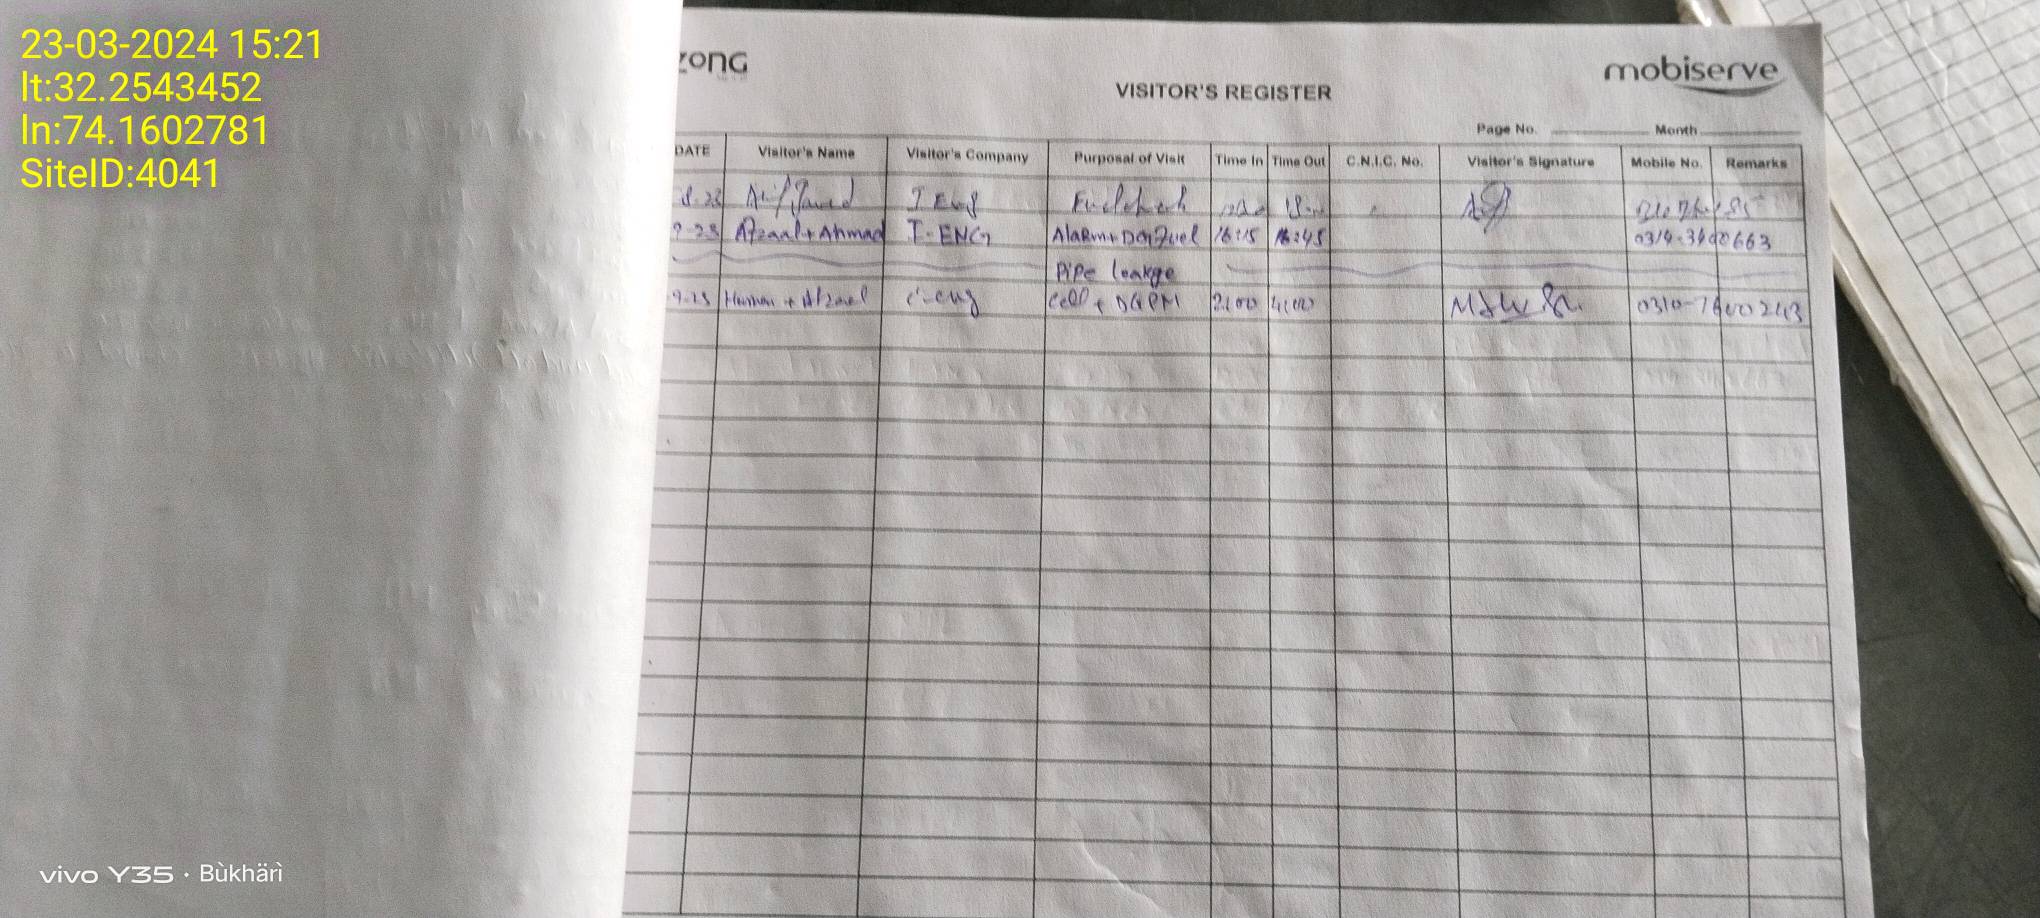 23-03-2024 15:21
lt:32.2543452
ln:74.1602781
SiteID:4041
zong
mobiserve
VISITOR'S REGISTER
Page No. Month
DATE Visitor's Name Visitor's Company Purposal of Visit Time In Time Out C.N.I.C. No. Visitor's Signature Mobile No. Remarks
8-23
9-23 Afzaal + Ahmad I-ENG Alarm + DG Fuel 16:15 16:45 0314-3400663
Pipe leakge
9-23 + Afzaal Cell + DGPM 2:00 4:00 0310-7600243
vivo Y35 · Bùkhäri